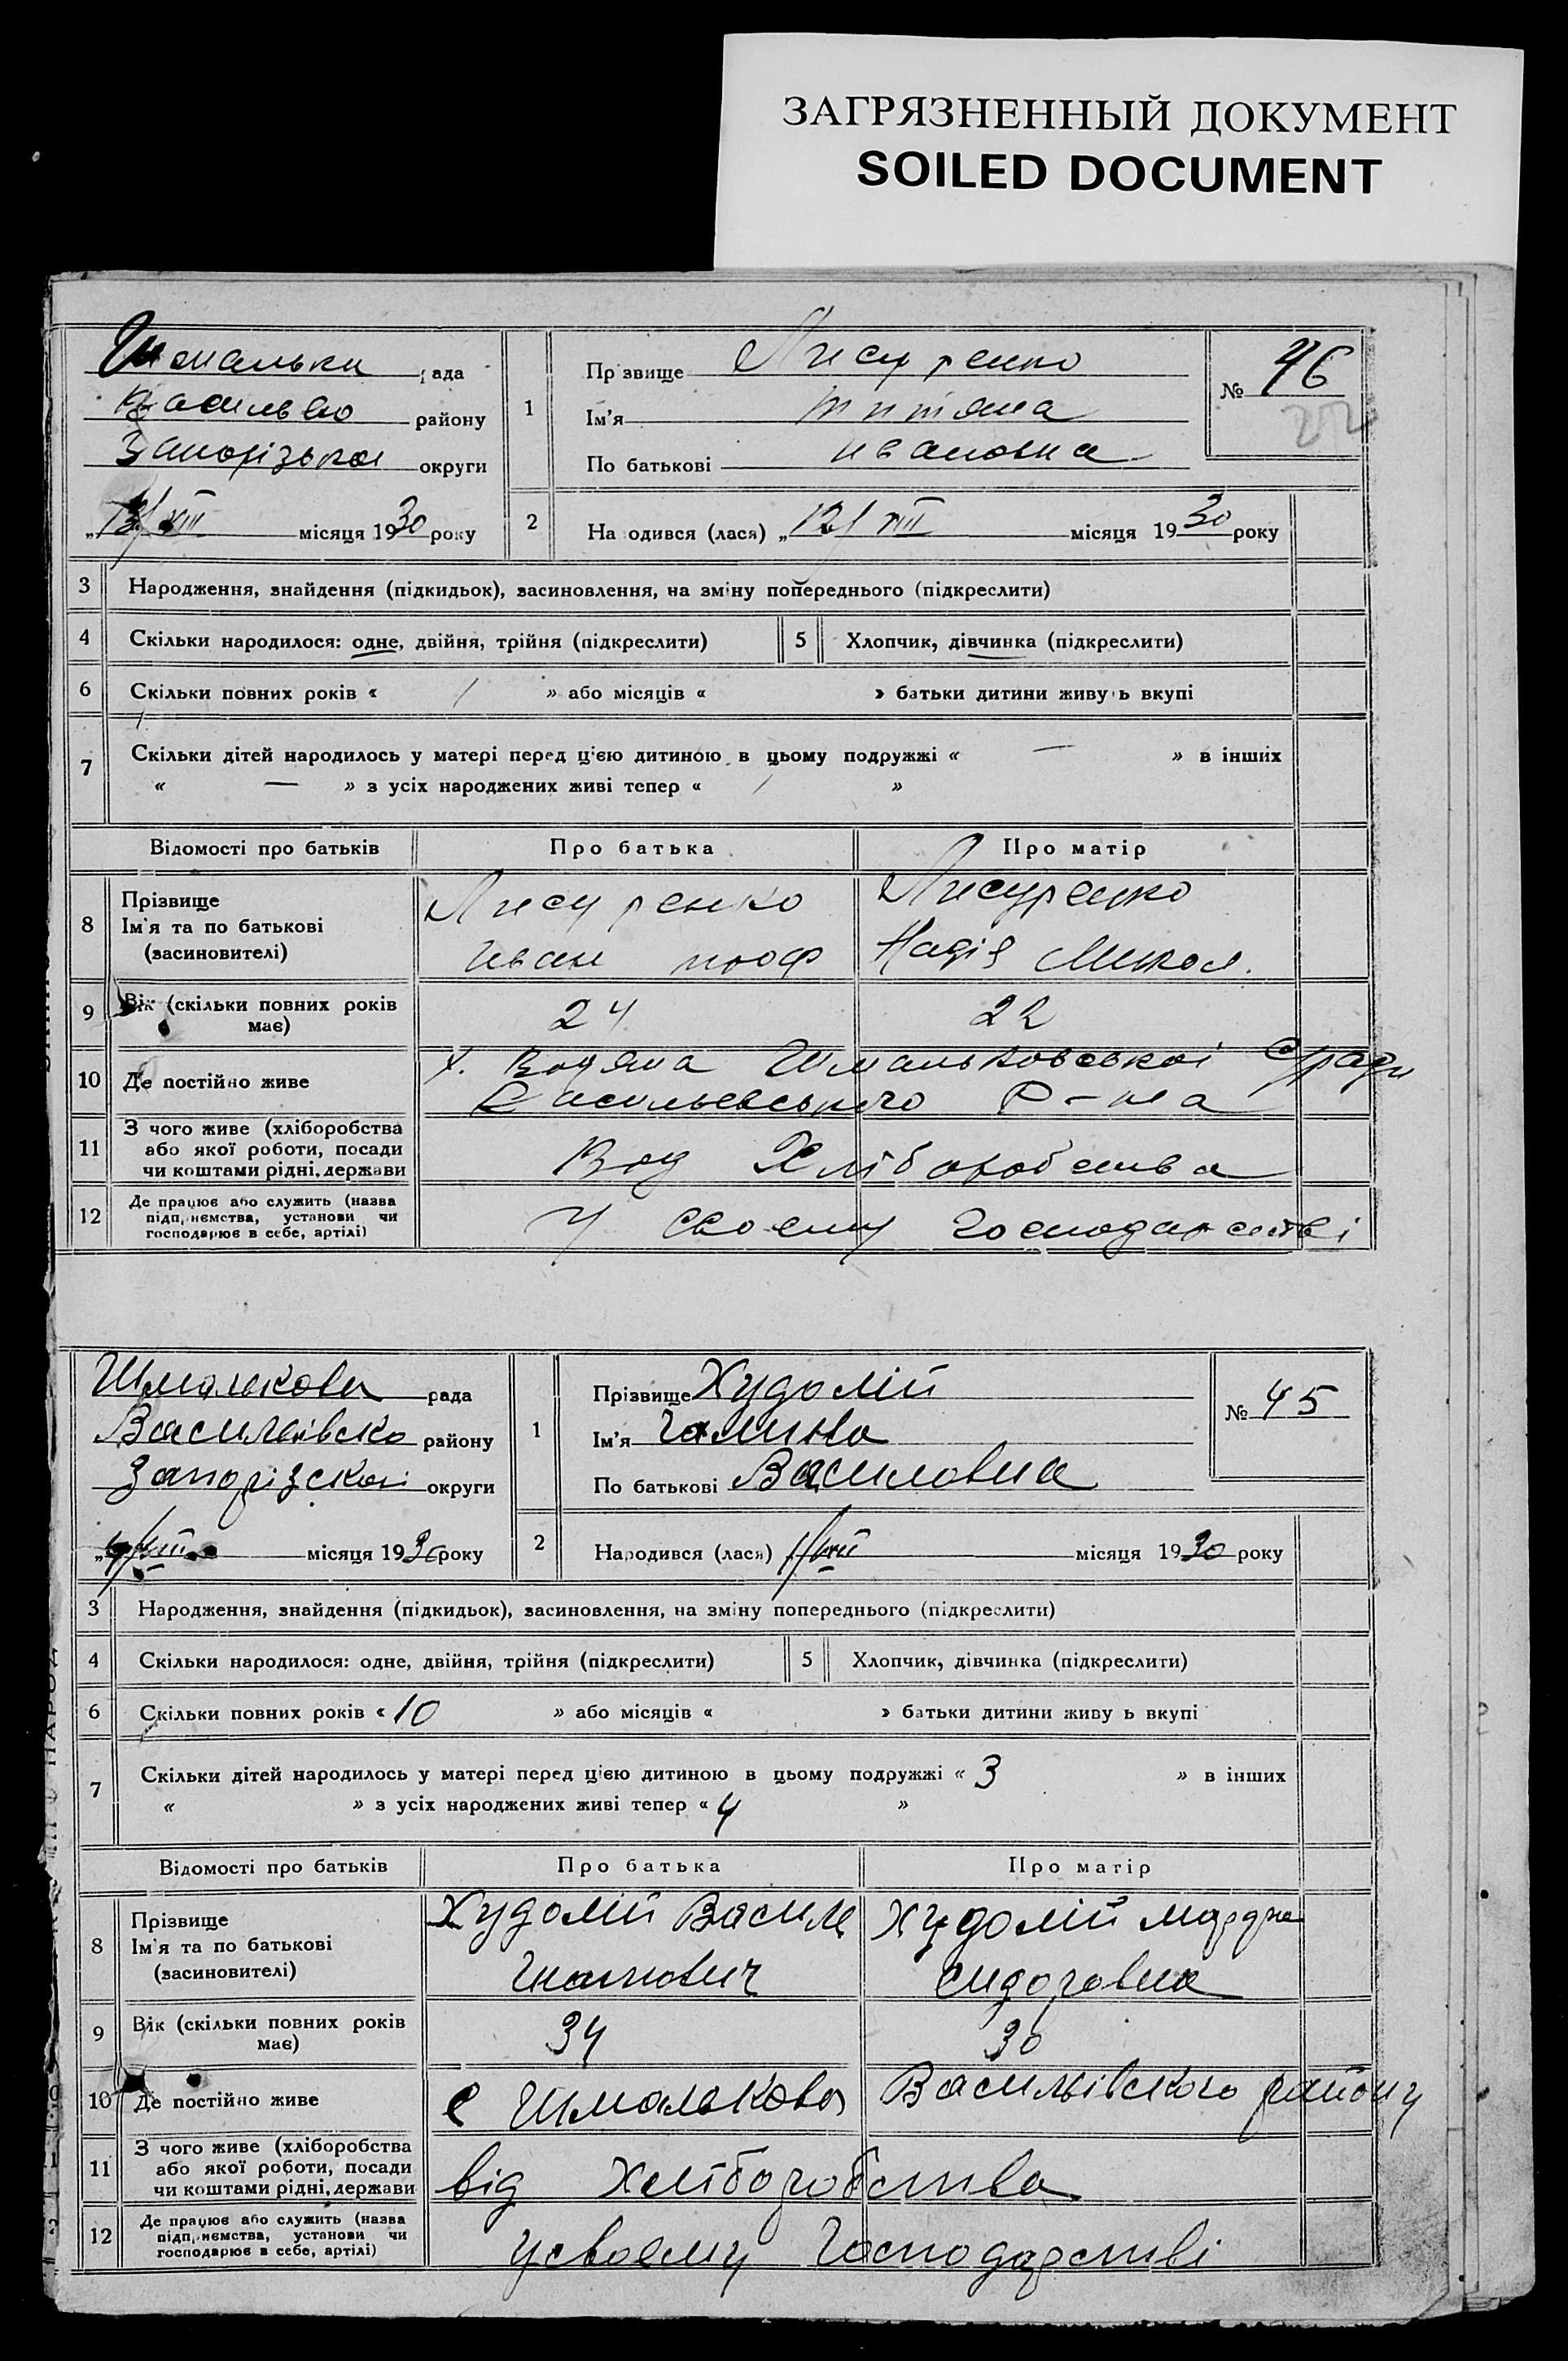 ЗАГРЯЗНЕННЫЙ ДОКУМЕНТ
SOILED DOCUMENT
рада
району
Запорізькоі округи
місяця 1930 року
1
Прізвище Лисуренко
Ім'я
По батькові ивановна
№ 46
202
2
Народився (лася) „12/VIII місяця 1930 року
3 Народження, знайдення (підкидьок), засиновлення, на зміну попереднього (підкреслити)
4 Скільки народилося: одне, двійня, трійня (підкреслити) 5 Хлопчик, дівчинка (підкреслити)
6 Скільки повних років « 1 » або місяців « » батьки дитини живуть вкупі
7 Скільки дітей народилось у матері перед цією дитиною в цьому подружжі « — » в інших
« — » з усіх народжених живі тепер « 1 »
Відомості про батьків Про батька Про матір
8 Прізвище
Ім'я та по батькові
(засиновителі)
Лисуренко
Иван
Лисуренко
Надія Микол.
9 Вік (скільки повних років
має)
24 22
10 Де постійно живе
х. Водяна Шмальковськоі С/ради
Василевського Р-на
11 З чого живе (хліборобства
або якої роботи, посади
чи коштами рідні, держави
Вод Хліборобства
12 Де працює або служить (назва
підприємства, установи чи
господарює в себе, артілі)
У своєму господарстві
Шмалькова рада
Василівско району
Запорізскоі округи
місяця 1930 року
1
Прізвище Худолій
Ім'я Галина
По батькові Василовна
№ 45
2
Народився (лася) місяця 1930 року
3 Народження, знайдення (підкидьок), засиновлення, на зміну попереднього (підкреслити)
4 Скільки народилося: одне, двійня, трійня (підкреслити) 5 Хлопчик, дівчинка (підкреслити)
6 Скільки повних років « 10 » або місяців « » батьки дитини живуть вкупі
7 Скільки дітей народилось у матері перед цією дитиною в цьому подружжі « 3 » в інших
« » з усіх народжених живі тепер « 4 »
Відомості про батьків Про батька Про матір
8 Прізвище
Ім'я та по батькові
(засиновителі)
Худолій Василь
Гнатович
Худолій
Сидоровна
9 Вік (скільки повних років
має)
34 30
10 Де постійно живе
с Шмалькова Васильівского району
11 З чого живе (хліборобства
або якої роботи, посади
чи коштами рідні, держави
від хліборобства
12 Де працює або служить (назва
підприємства, установи чи
господарює в себе, артілі)
усвоєму Господарстві